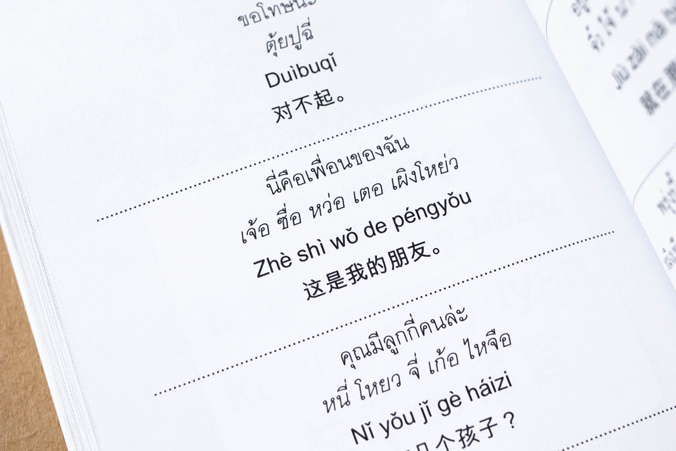 ขอโทษนะ
ตุ้ยปูฉี่
Duìbuqǐ
对不起。
นี่คือเพื่อนของฉัน
เจ้อ ซื่อ หว่อ เตอ เผิงโหย่ว
Zhè shì wǒ de péngyǒu
这是我的朋友。
คุณมีลูกกี่คนล่ะ
หนี่ โหยว จี่ เก้อ ไหจือ
Nǐ yǒu jǐ gè háizi
几个孩子？
Jiù zài